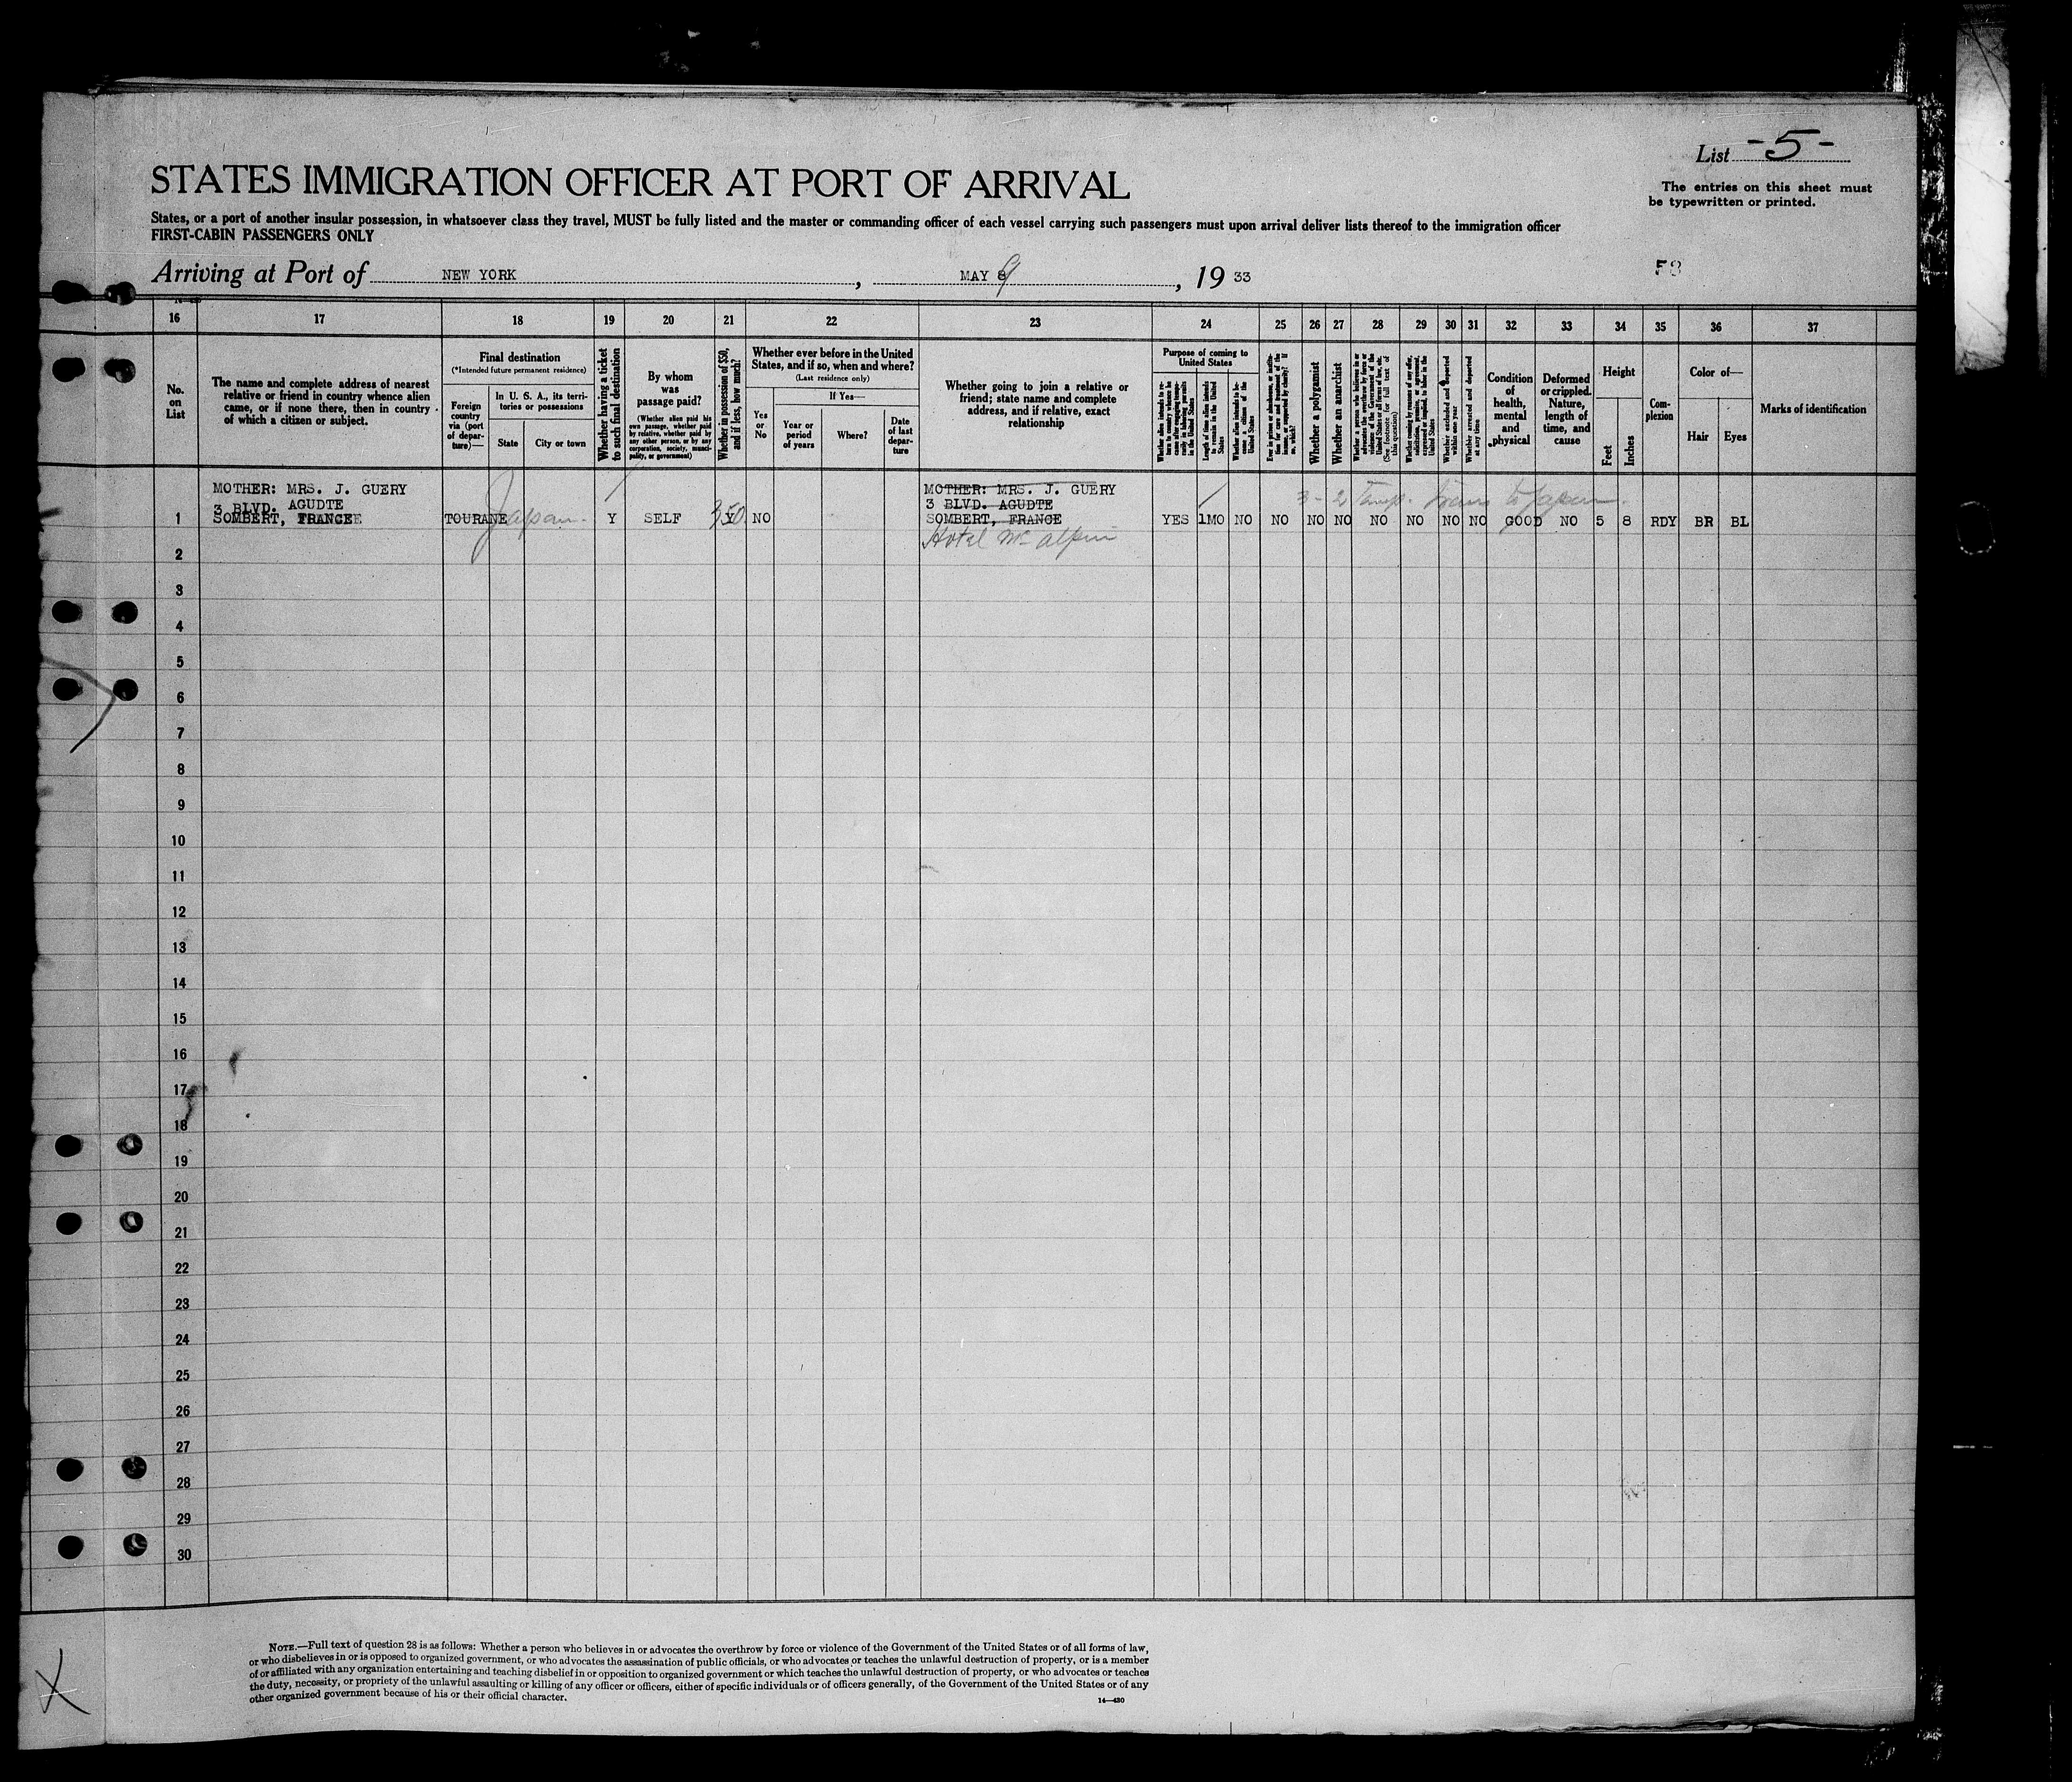 List -5-
STATES IMMIGRATION OFFICER AT PORT OF ARRIVAL
The entries on this sheet must
be typewritten or printed.
States, or a port of another insular possession, in whatsoever class they travel, MUST be fully listed and the master or commanding officer of each vessel carrying such passengers must upon arrival deliver lists thereof to the immigration officer
FIRST-CABIN PASSENGERS ONLY
Arriving at Port of NEW YORK, MAY 8 9, 19 33
16 17 18 19 20 21 22 23 24 25 26 27 28 29 30 31 32 33 34 35 36 37
No.
on
List
The name and complete address of nearest
relative or friend in country whence alien
came, or if none there, then in country
of which a citizen or subject.
Final destination
(*Intended future permanent residence)
Foreign
country
via (port
of depar-
ture)—
In U. S. A., its terri-
tories or possessions
State
City or town
Whether having a ticket
to such final destination
By whom
was
passage paid?
(Whether alien paid his
own passage, whether paid
by relative, whether paid by
any other person, or by any
corporation, society, munici-
pality, or government)
Whether in possession of $50,
and if less, how much?
Whether ever before in the United
States, and if so, when and where?
(Last residence only)
Yes
or
No
If Yes—
Year or
period
of years
Where?
Date
of last
depar-
ture
Whether going to join a relative or
friend; state name and complete
address, and if relative, exact
relationship
Purpose of coming to
United States
Length of time alien intends
to remain in the United
States
Whether alien intends to be-
come a citizen of the
United States
Whether a polygamist
Whether an anarchist
(See footnote for full text of
this question)
Whether arrested and deported
at any time
Condition
of
health,
mental
and
physical
Deformed
or crippled.
Nature,
length of
time, and
cause
Height
Feet
Inches
Com-
plexion
Color of—
Hair
Eyes
Marks of identification
MOTHER: MRS. J. GUERY
3 BLVD. AGUDTE
SOMBERT, FRANCE
MOTHER: MRS. J. GUERY
3 BLVD. AGUDTE
SOMBERT, FRANCE
Hotel Mc Alpin
3-2 Temp. Trans to Japan
1 TOURANE Japan Y SELF 350 Y NO YES 1MO NO NO NO NO NO NO NO NO GOOD NO 5 8 RDY BR BL
2
3
4
5
6
7
8
9
10
11
12
13
14
15
16
17
18
19
20
21
22
23
24
25
26
27
28
29
30
NOTE.—Full text of question 28 is as follows: Whether a person who believes in or advocates the overthrow by force or violence of the Government of the United States or of all forms of law,
or who disbelieves in or is opposed to organized government, or who advocates the assassination of public officials, or who advocates or teaches the unlawful destruction of property, or is a member
of or affiliated with any organization entertaining and teaching disbelief in or opposition to organized government or which teaches the unlawful destruction of property, or who advocates or teaches
the duty, necessity, or propriety of the unlawful assaulting or killing of any officer or officers, either of specific individuals or of officers generally, of the Government of the United States or of any
other organized government because of his or their official character.
14—430
X